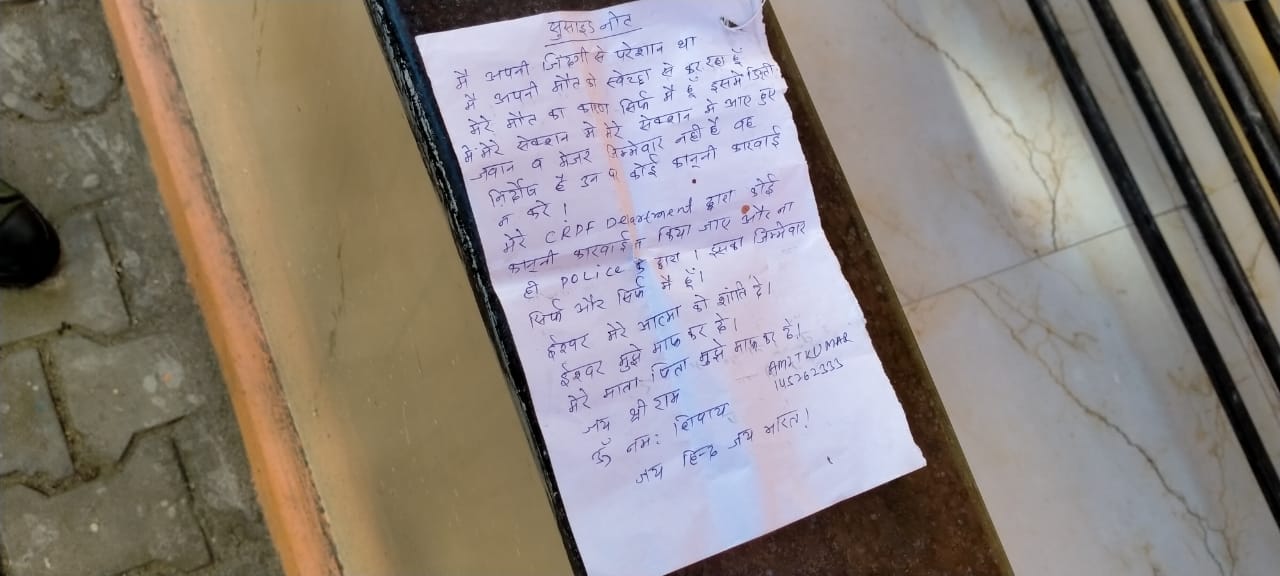 सुसाइड नोट
मैं अपनी जिंदगी से परेशान था
मैं अपनी मौत को स्वेच्छा से कर रहा हूँ
मेरे मौत का कारण सिर्फ मैं हूँ इसमे किसी
में मेरे सेक्शन में मेरे सेक्शन में आए हुए
जवान व मेजर जिम्मेवार नहीं है वह
निर्दोष है उन प कोई कानूनी कारवाई
न करे !
मेरे CRPF Deartment द्वारा कोई
कानूनी कारवाई न किया जाए और ना
ही POLice के द्वारा । इसका जिम्मेवार
सिर्फ और सिर्फ मैं हूँ।
ईश्वर मेरे आत्मा को शांति दे।
ईश्वर मुझे माफ कर दे।
मेरे माता-पिता मुझे माफ कर दे।
AMIT KUMAR
145262333
जय श्री राम
ॐ नम: शिवाय
जय हिन्द जय भारत!